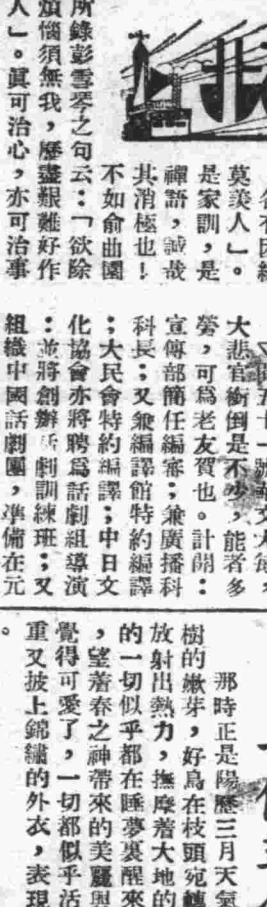 莫羨人」。
是家訓，是
禪語，誠哉
其消極也！
不如俞曲園
所錄彭雪琴之句云：「欲除
煩惱須無我，歷盡艱難好作
人」。眞可治心，亦可治事
大悲官銜倒是不少，能者多
勞，可爲老友賀也。計開：
宣傳部簡任編審；兼廣播科
科長；又兼編譯館特約編譯
；大民會特約編譯；中日文
化協會亦將聘爲話劇組導演
：並將創辦話劇訓練班；又
組織中國話劇團，準備在元
那時正是陽歷三月天氣
樹的嫩芽，好鳥在枝頭宛轉
放射出熱力，撫摩着大地的
的一切似乎都在睡夢裏醒來
，望着春之神帶來的美麗與
覺得可愛了，一切都似乎活
重又披上錦繡的外衣，表現
。